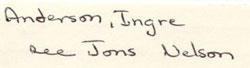 Anderson, Ingre
see Jons Nelson